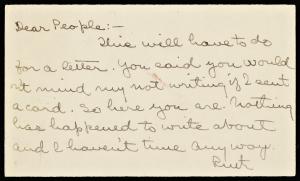 Dear People:-
This will have to do
for a letter. You said you would
n't mind my not writing if I sent
a card. So here you are. Nothing
has happened to write about
and I haven't time any way.
Ruth